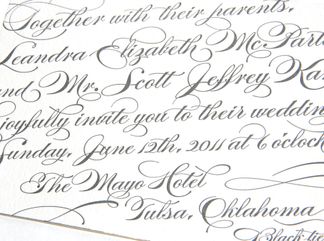 Together with their parents,
Leandra Elizabeth McPart
and Mr. Scott Jeffrey Ka
joyfully invite you to their weddin
Sunday, June 12th, 2011 at 6 o'clock
The Mayo Hotel
Tulsa, Oklahoma
Black-tie